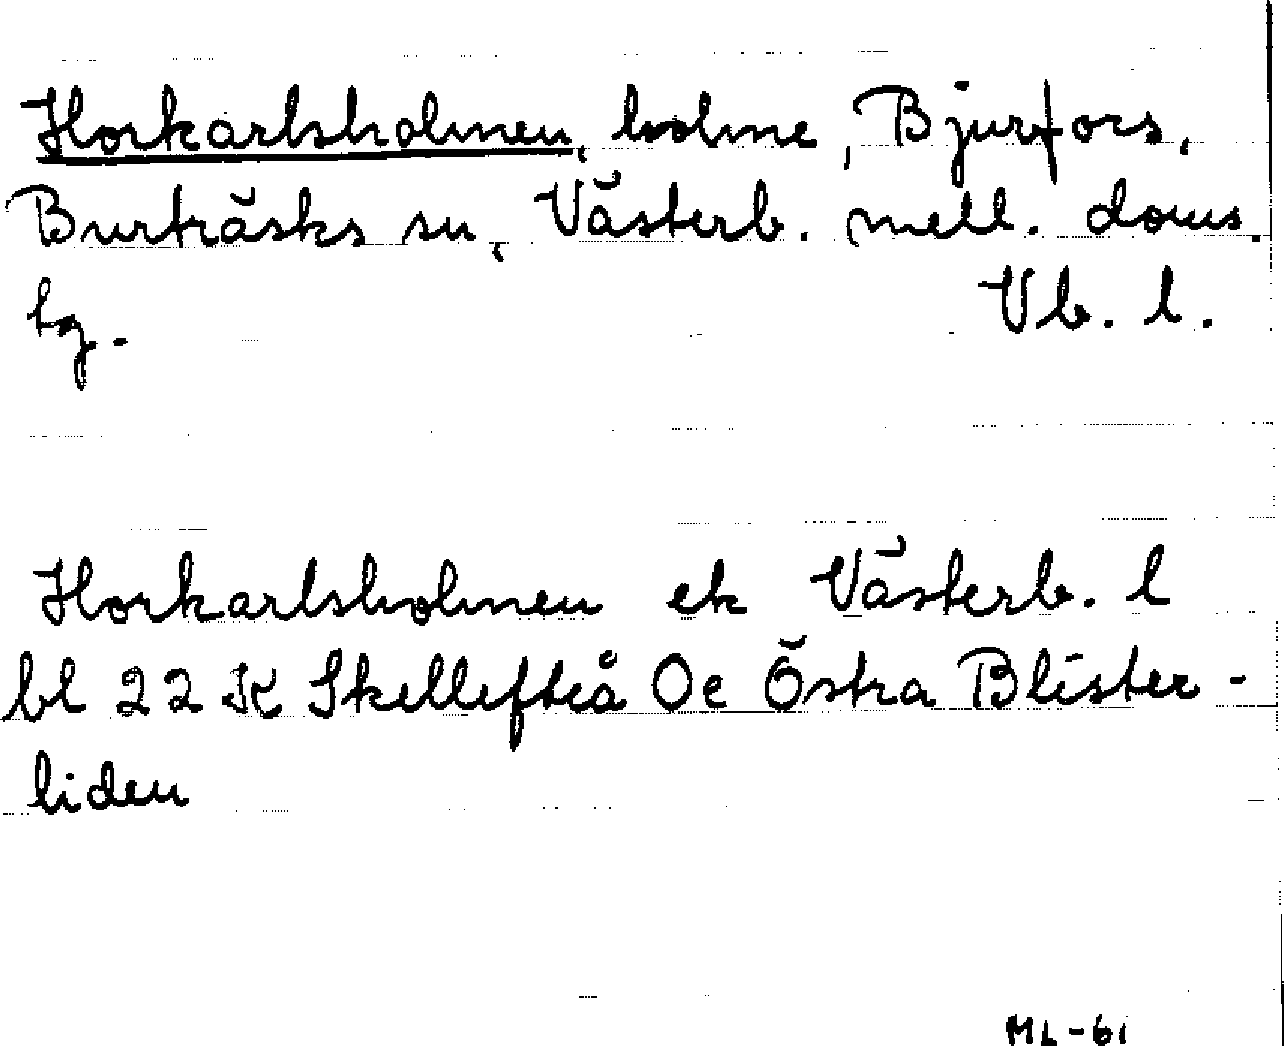 Horkarlsholmen, holme, Bjurfors,
Burträsks sn, Västerb. mell. doms.
hg.
Vb. l.
Horkarlsholmen ek Västerb. l
bl 22 K Skellefteå Oc Östra Blister-
liden
ML-61